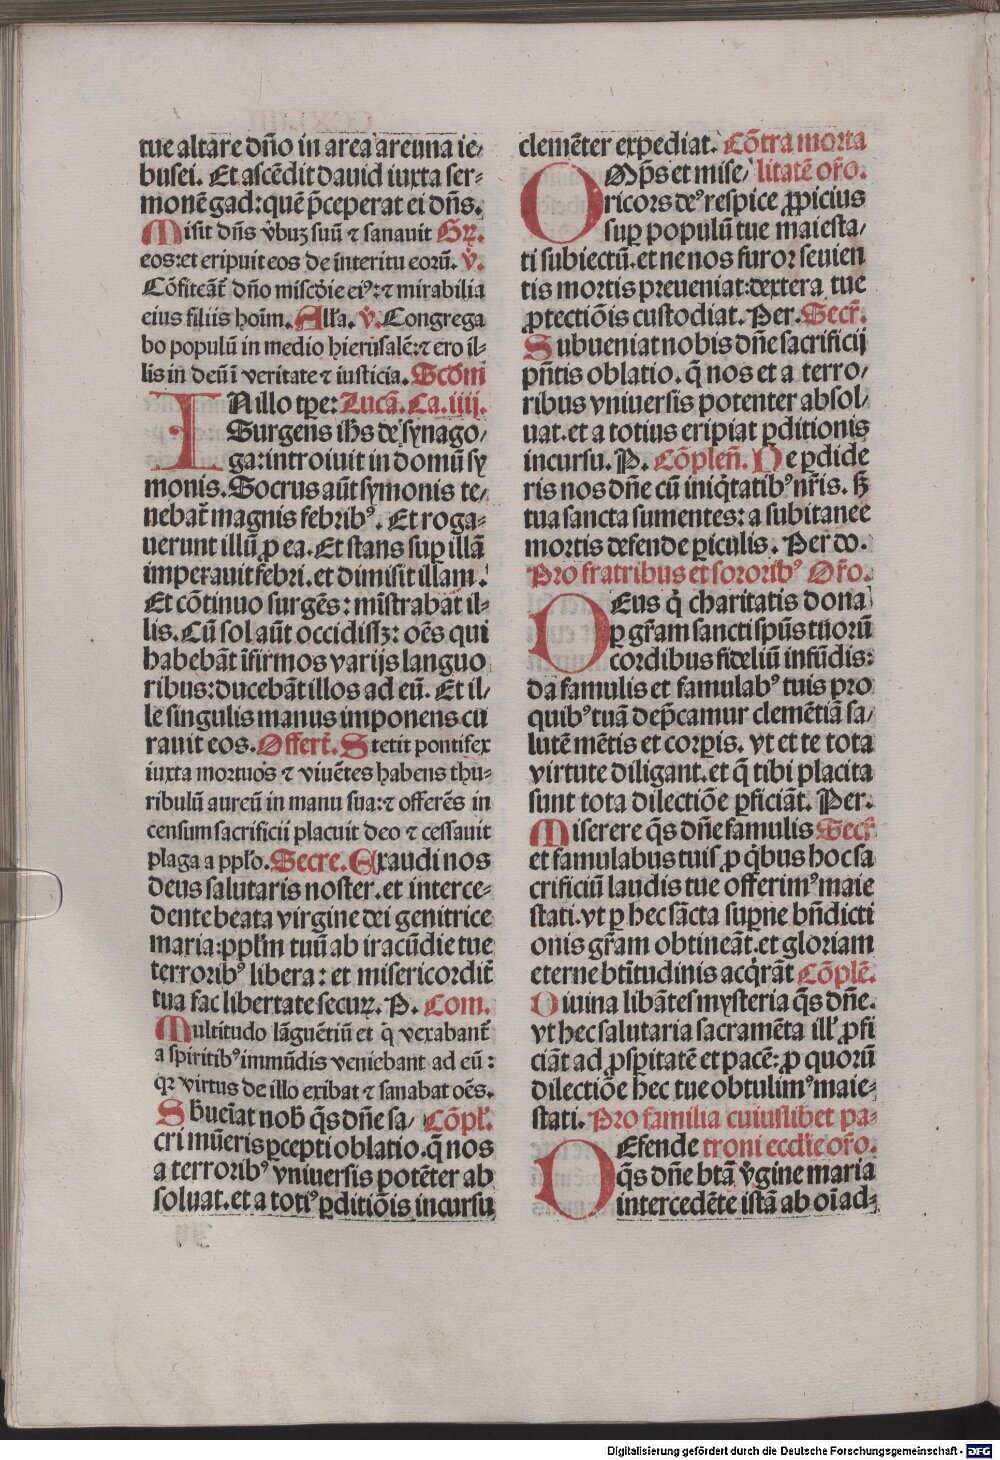 tue altare dño in area areuna ie⸗
busei. Et ascēdit dauid iuxta ser⸗
monē gad: quē p̄ceperat ei dñs.
Misit dñs v̄buꝫ suū ⁊ sanauit Gꝝ.
eos: et eripuit eos de interitu eorū. ℣.
Cōfiteāt̄ dño misc̄die eiꝰ: ⁊ mirabilia
eius filiis hoīm. Alľa. ℣. Congrega
bo populū in medio hierusalē: ⁊ ero il⸗
lis in deū ī veritate ⁊ iusticia. Scd̄m
IN illo tꝑe: Lucā. Ca. iiii.
Surgens ih̄s de synago⸗
ga: introiuit in domū sy
monis. Socrus aūt symonis te⸗
nebat̄ magnis febribꝰ. Et roga⸗
uerunt illū ꝓ ea. Et stans suꝑ illā
imperauit febri. et dimisit illam.
Et cōtinuo surgēs: mīstrabat il⸗
lis. Cū sol aūt occidissꝫ: oēs qui
habebāt īfirmos varijs languo
ribus: ducebāt illos ad eū. Et il⸗
le singulis manus imponens cu
rauit eos. Offert̄. Stetit pontifex
iuxta mortuos ⁊ viuētes habens thu⸗
ribulū aureū in manu sua: ⁊ offerēs in
censum sacrificii placuit deo ⁊ cessauit
plaga a pp̄ľo. Secre. Exaudi nos
deus salutaris noster. et interce⸗
dente beata virgine dei genitrice
maria: pp̄ľm tuū ab iracūdie tue
terroribꝰ libera: et misericordit̄
tua fac libertate securꝝ. P. Com.
Multitudo lāguētiū et q̄ vexabant̄
a spiritibꝰ immūdis veniebant ad eū:
qꝛ virtus de illo exibat ⁊ sanabat oēs.
Sb̄ueīat nob̄ q̄s dñe sa⸗ Cōpľ.
cri mūeris ꝑcepti oblatio. q̄ nos
a terroribꝰ vniuersis potēter ab
soluat. et a totiꝰ ꝑditiōis incursu
clemēter expediat. Cōtra morta
OMp̄s et mise⸗ litatē oŕo.
ricors deꝰ respice ꝓpicius
suꝑ populū tue maiesta⸗
ti subiectū. et ne nos furor seuien
tis mortis preueniat: dextera tue
ꝓtectiōis custodiat. Per. Secŕ.
Subueniat nobis dñe sacrificij
pñtis oblatio. q̄ nos et a terro⸗
ribus vniuersis potenter absol⸗
uat. et a totius eripiat ꝑditionis
incursu. P. Cōpleñ. Ne ꝑdide
ris nos dñe cū iniq̄tatibꝰ nŕis. sꝫ
tua sancta sumentes: a subitanee
mortis defende ꝑiculis. Per do.
Pro fratribus et sororibꝰ Oŕo.
DEus q̇ charitatis dona
ꝑ gŕam sancti spūs tuorū
cordibus fideliū infūdis:
da famulis et famulabꝰ tuis pro
quibꝰ tuā dep̄camur clemētiā sa⸗
lutē mētis et corꝑis. vt et te tota
virtute diligant. et q̄ tibi placita
sunt tota dilectiōe ꝑficiāt. Per.
Miserere q̄s dñe famulis Secŕ
et famulabus tuis ꝓ q̇bus hoc sa
crificiū laudis tue offerimꝰ maie
stati. vt ꝑ hec sācta suꝑne bñdicti
onis gŕam obtineāt. et gloriam
eterne btītudinis acq̇rāt Cōplē.
Diuina libātes mysteria q̄s dñe.
vt hec salutaria sacramēta illꝰ ꝓfi
ciāt ad ꝓsꝑitatē et pacē: ꝓ quorū
dilectiōe hec tue obtulimꝰ maie⸗
stati. Pro familia cuiuslibet pa⸗
DEfende troni ecc̄lie oŕo.
q̄s dñe btā v̄gine maria
intercedēte istā ab oī ad⸗
Digitalisierung gefördert durch die Deutsche Forschungsgemeinschaft - DFG